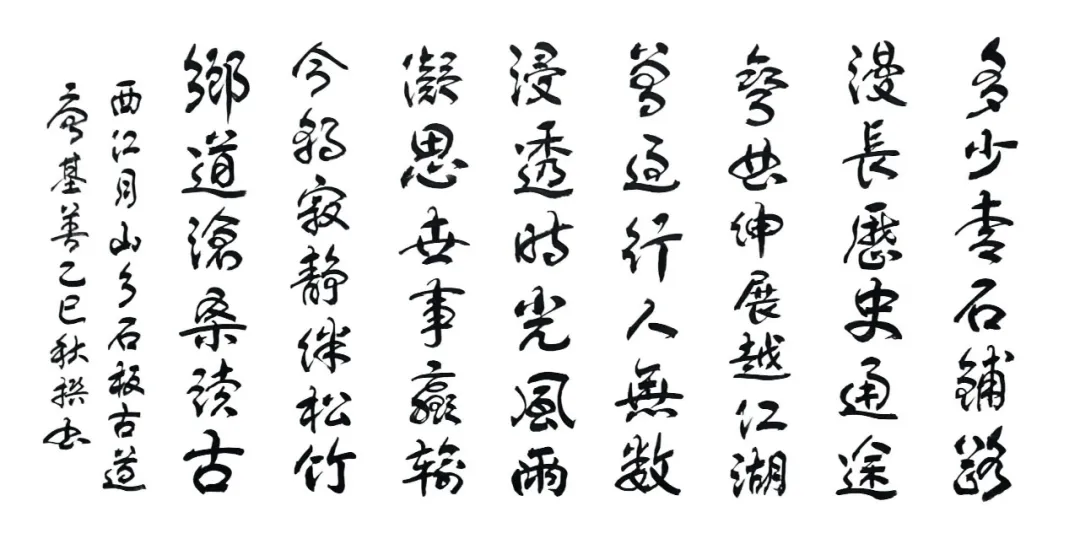 多少青石鋪路
漫長歷史通途
彎曲伸展越江湖
曾過行人無数
浸透時光風雨
凝思世事贏輸
今寂靜松竹
鄉道滄桑读古
西江月山乡石板古道
基善乙巳秋撰书